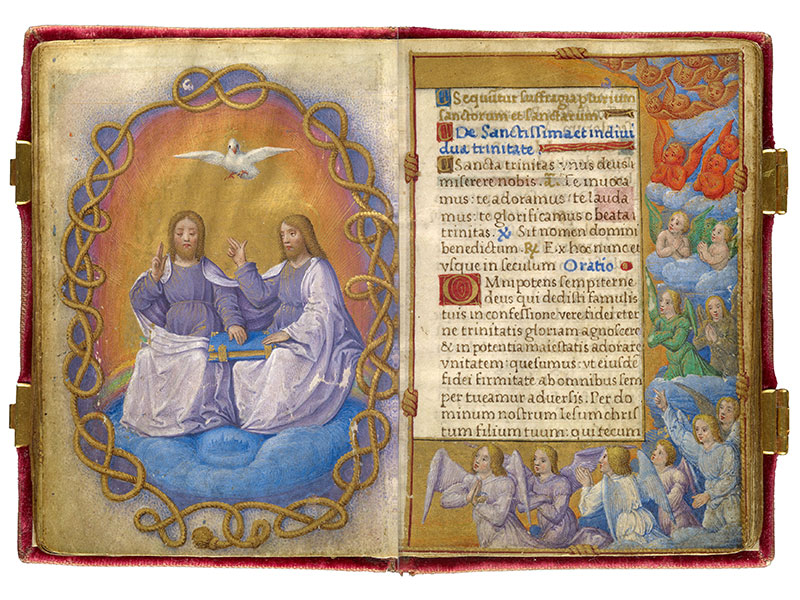 Sequūtur suffragia plurium
sanctorum et sanctarum.
De Sanctissima et indiui
dua trinitate
Sancta trinitas vnus deus
miserere nobis. Te inuoca
mus: te adoramus: te lauda
mus: te glorificamus o beata
trinitas. Sit nomen domini
benedictum. Ex hoc nunc et
vsque in seculum Oratio
OMnipotens sempiterne
deus qui dedisti famulis
tuis in confessione vere fidei eter
ne trinitatis gloriam agnoscere
& in potentia maiestatis adorare
vnitatem: quesumus: vt eiusdē
fidei firmitate ab omnibus sem
per tueamur aduersis. Per do
minum nostrum Iesum chris
tum filium tuum: qui tecum